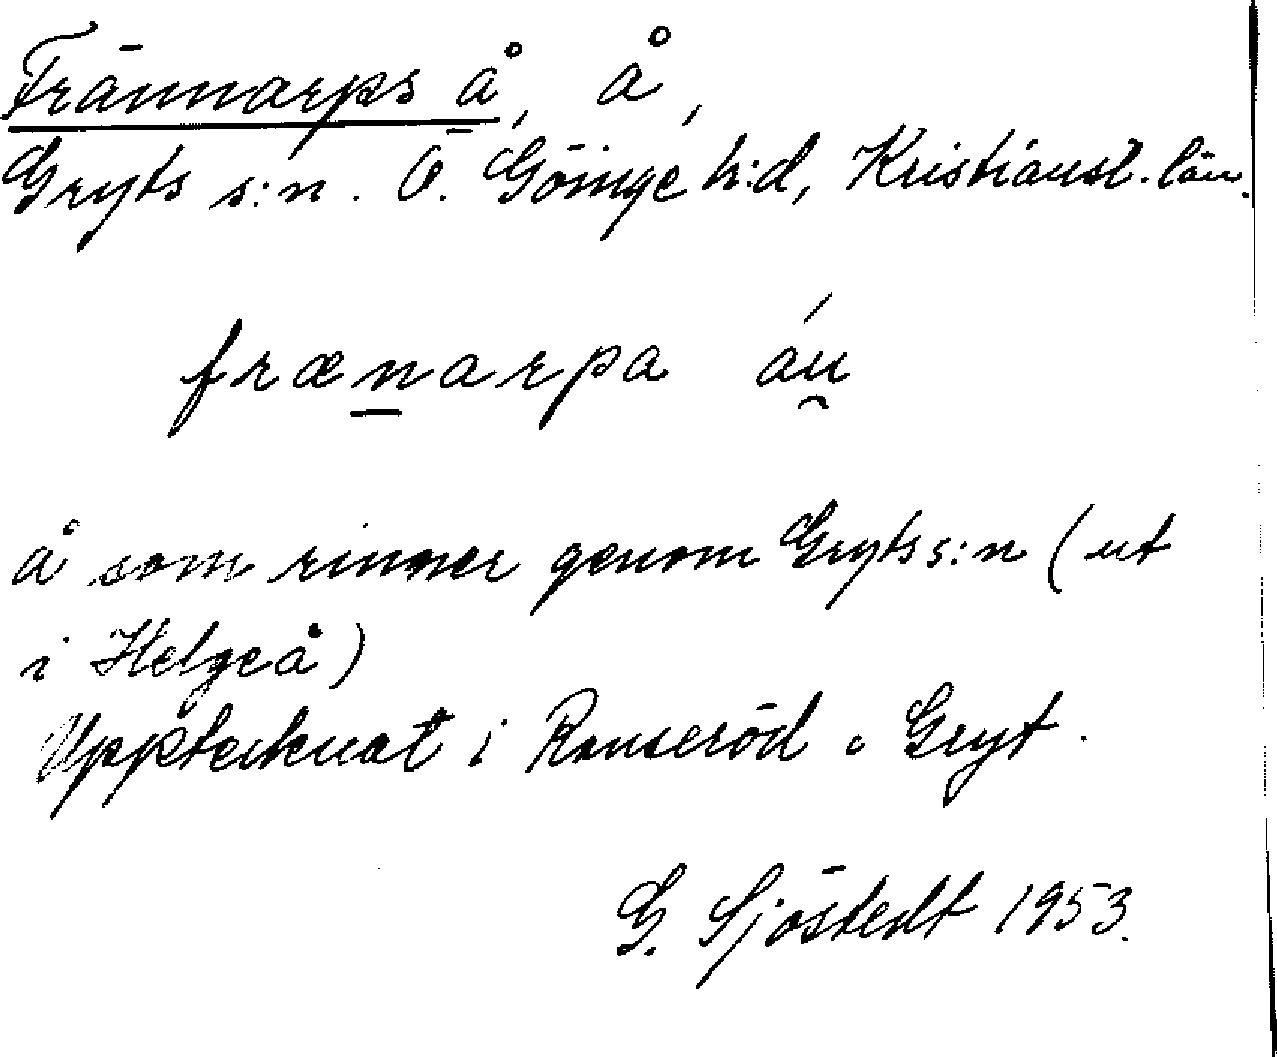 Frännarps å, å,
Gryts s:n. Ö. Göinge h:d, Kristianst. län.
frænarpa áu̯
å som rinner genom Gryts s:n (ut
i Helgeå)
Upptecknat i Ranseröd o Gryt.
G. Sjöstedt 1953.